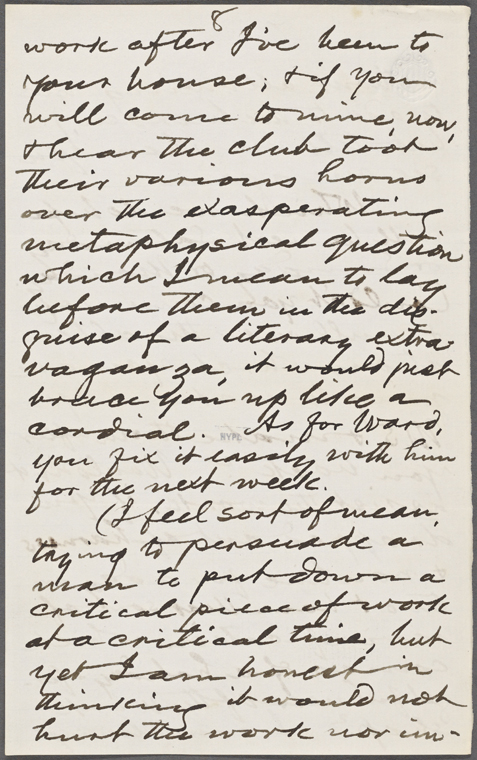 8
work after I've been to
your house; & if you
will come to mine, now,
& hear the club toot
their various horns
over the exasperating
metaphysical question
which I mean to lay
before them in the dis-
guise of a literary extra-
vaganza, it would just
brace you up like a
cordial. As for Ward,
you fix it easily with him
for the next week.
(I feel sort of mean,
trying to persuade a
man to put down a
critical piece of work
at a critical time, but
yet I am honest in
thinking it would not
hurt the work nor im-
NYPL